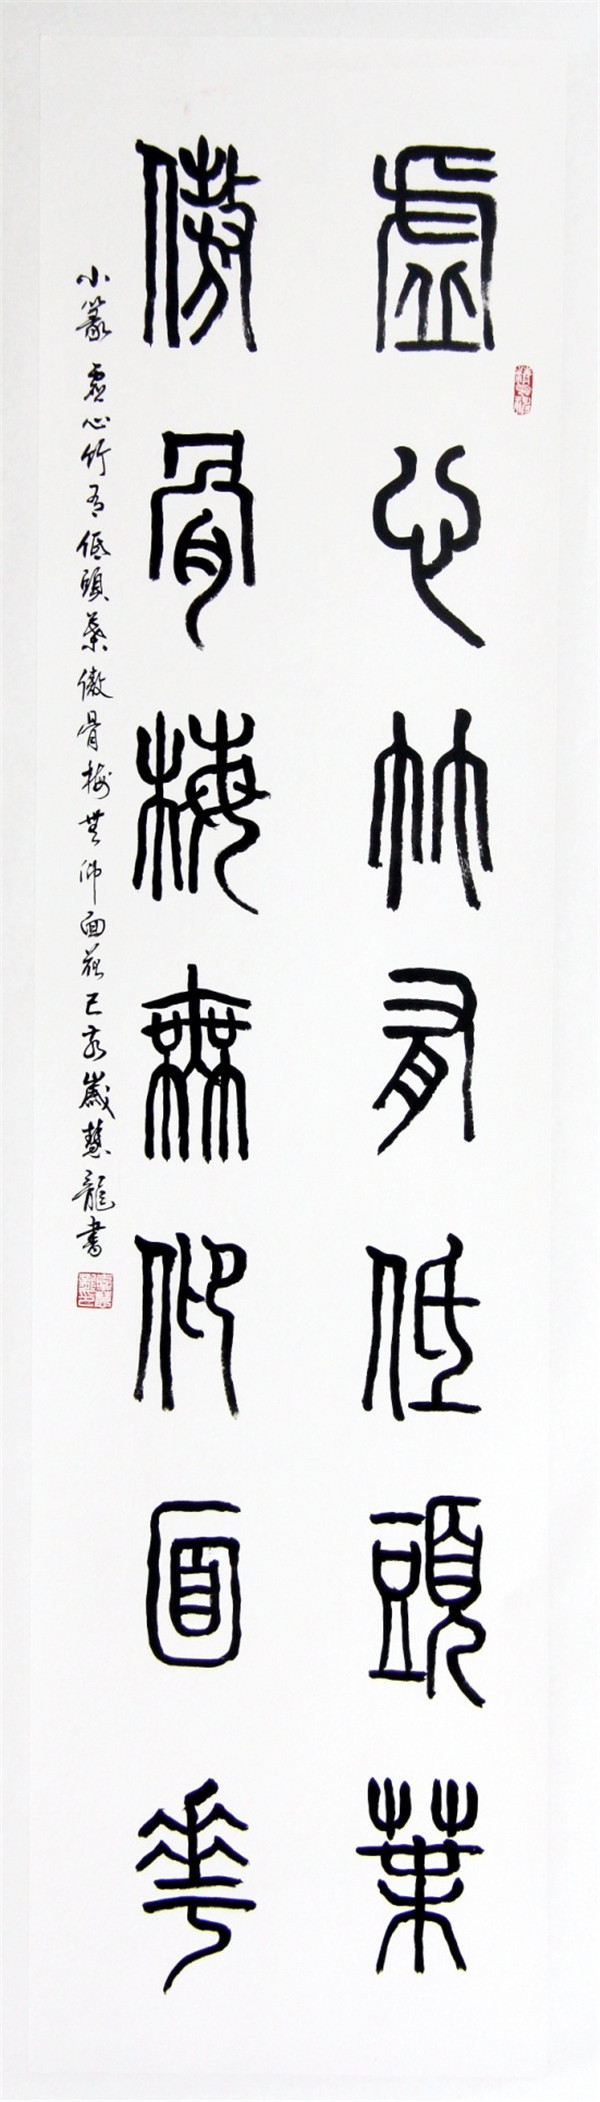 虛心竹有低頭葉
傲骨梅無仰面花
小篆虛心竹有低頭葉傲骨梅無仰面花己亥歲慧龍書